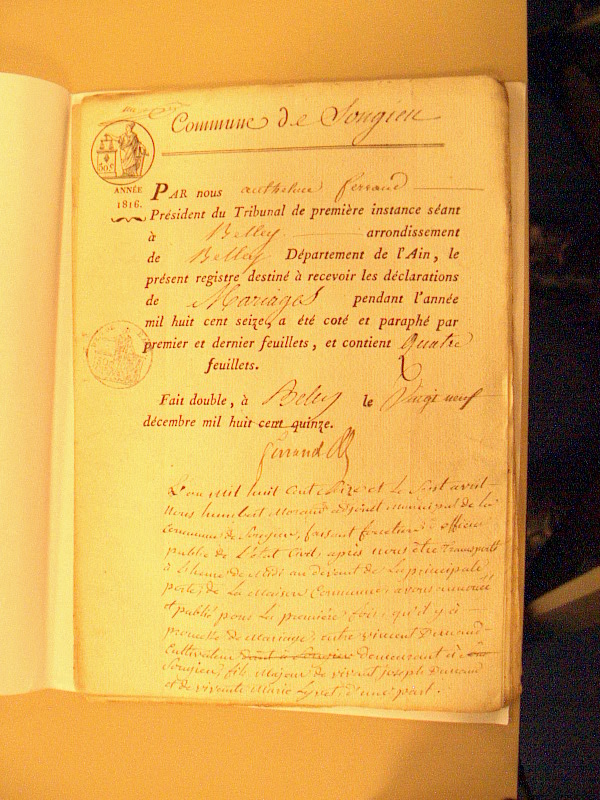 Commune de Songieu
50 C
ANNÉE
1816.
PAR nous anthelme ferrand
Président du Tribunal de première instance séant
à Belley arrondissement
de Belley Département de l'Ain, le
présent registre destiné à recevoir les déclarations
de Mariages pendant l'année
mil huit cent seize, a été coté et paraphé par
premier et dernier feuillets, et contient quatre
feuillets.
Fait double, à Belley le Vingt neuf
décembre mil huit cent quinze.
ferrand
L'an mil huit cent Seize et le Sept avril
Nous humbert adjoint municipal de la
Commune de Songieu, faisant fonctions d'officier
public de l'état Civil, après nous être transporté
à l'heure de Midi au devant de la principale
porte, de la Maison Commune, avons annoncé
et publié pour la première fois, qu'il y a
promesse de Mariage, entre vincent
Cultivateur demeurant à
Songieu, fils Majeur de vivant joseph
et de vivante Marie d'une part.